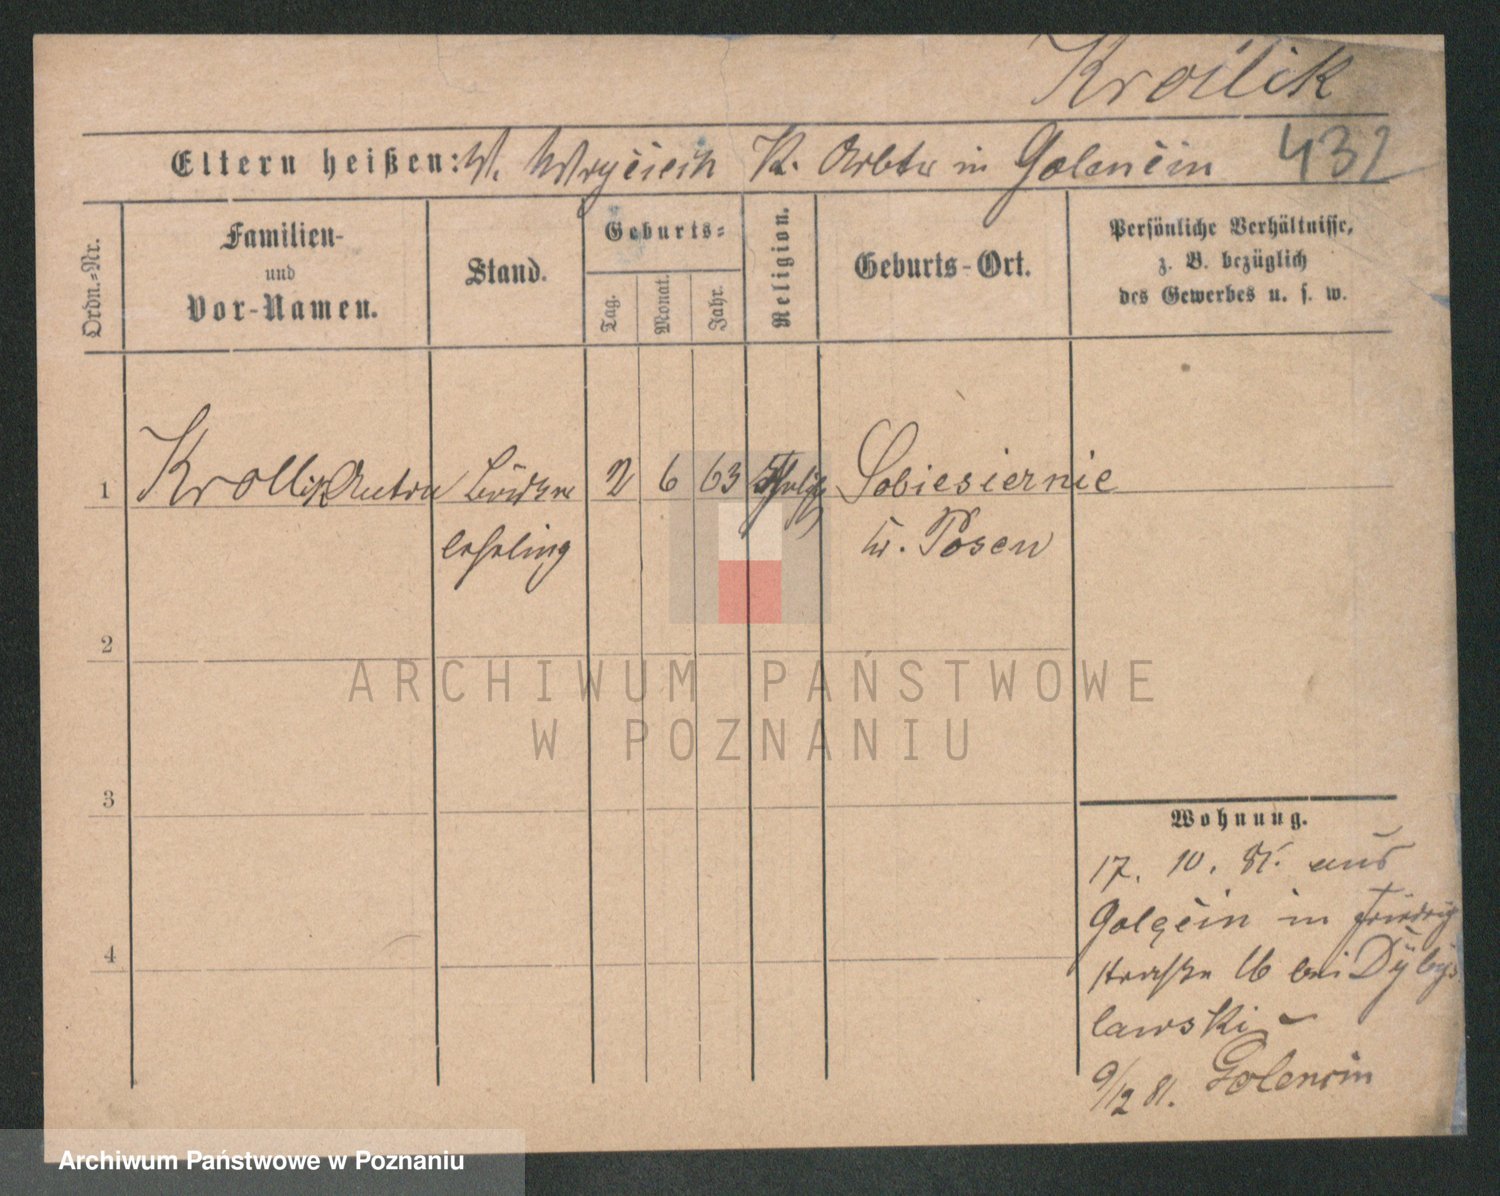 Krollik
432
Eltern heißen: W. Woyciech K. Arbtr in Golencin
Ordn.-Nr.
Familien-
und
Vor-Namen.
Stand.
Geburts-
Tag.
Monat.
Jahr.
Religion.
Geburts-Ort.
Persönliche Verhältnisse,
z. B. bezüglich
des Gewerbes u. s. w.
1 Krollik Anton 2 6 63 Sobiesiernie
lehrling Kr. Posen
2
3
4
Wohnung.
17. 10. 81. aus
in Friedrich
straße 16 bei Dyby
lawski
9/12 81. Golencin
ARCHIWUM PAŃSTWOWE
W POZNANIU
Archiwum Państwowe w Poznaniu